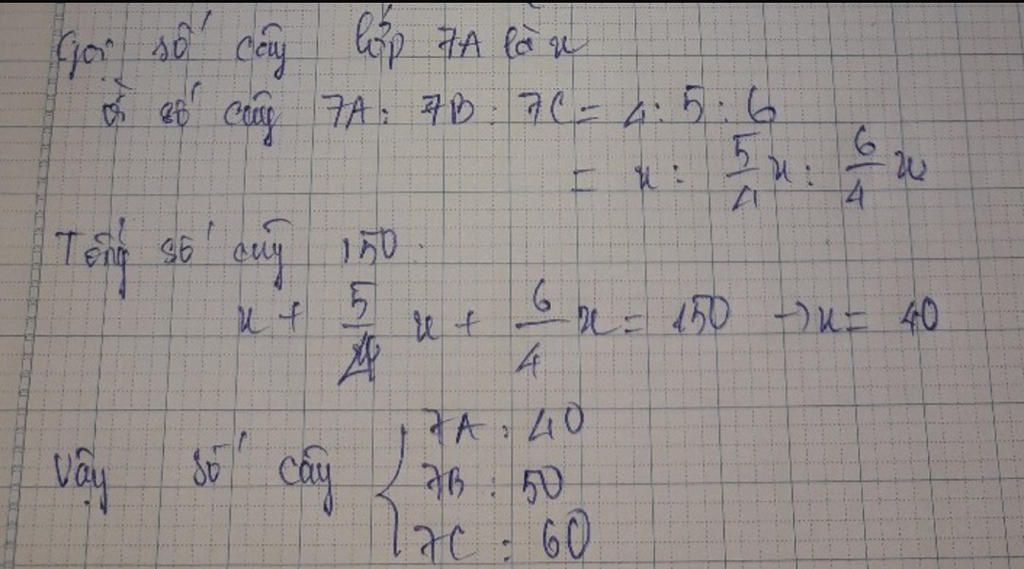 Gọi số cây lớp 7A là x
số cây 7A : 7B : 7C = 4 : 5 : 6
= x : 5/4 x : 6/4 x
Tổng số cây 150
x + 5/4 x + 6/4 x = 150 → x = 40
Vậy số cây { 7A : 40
7B : 50
7C : 60